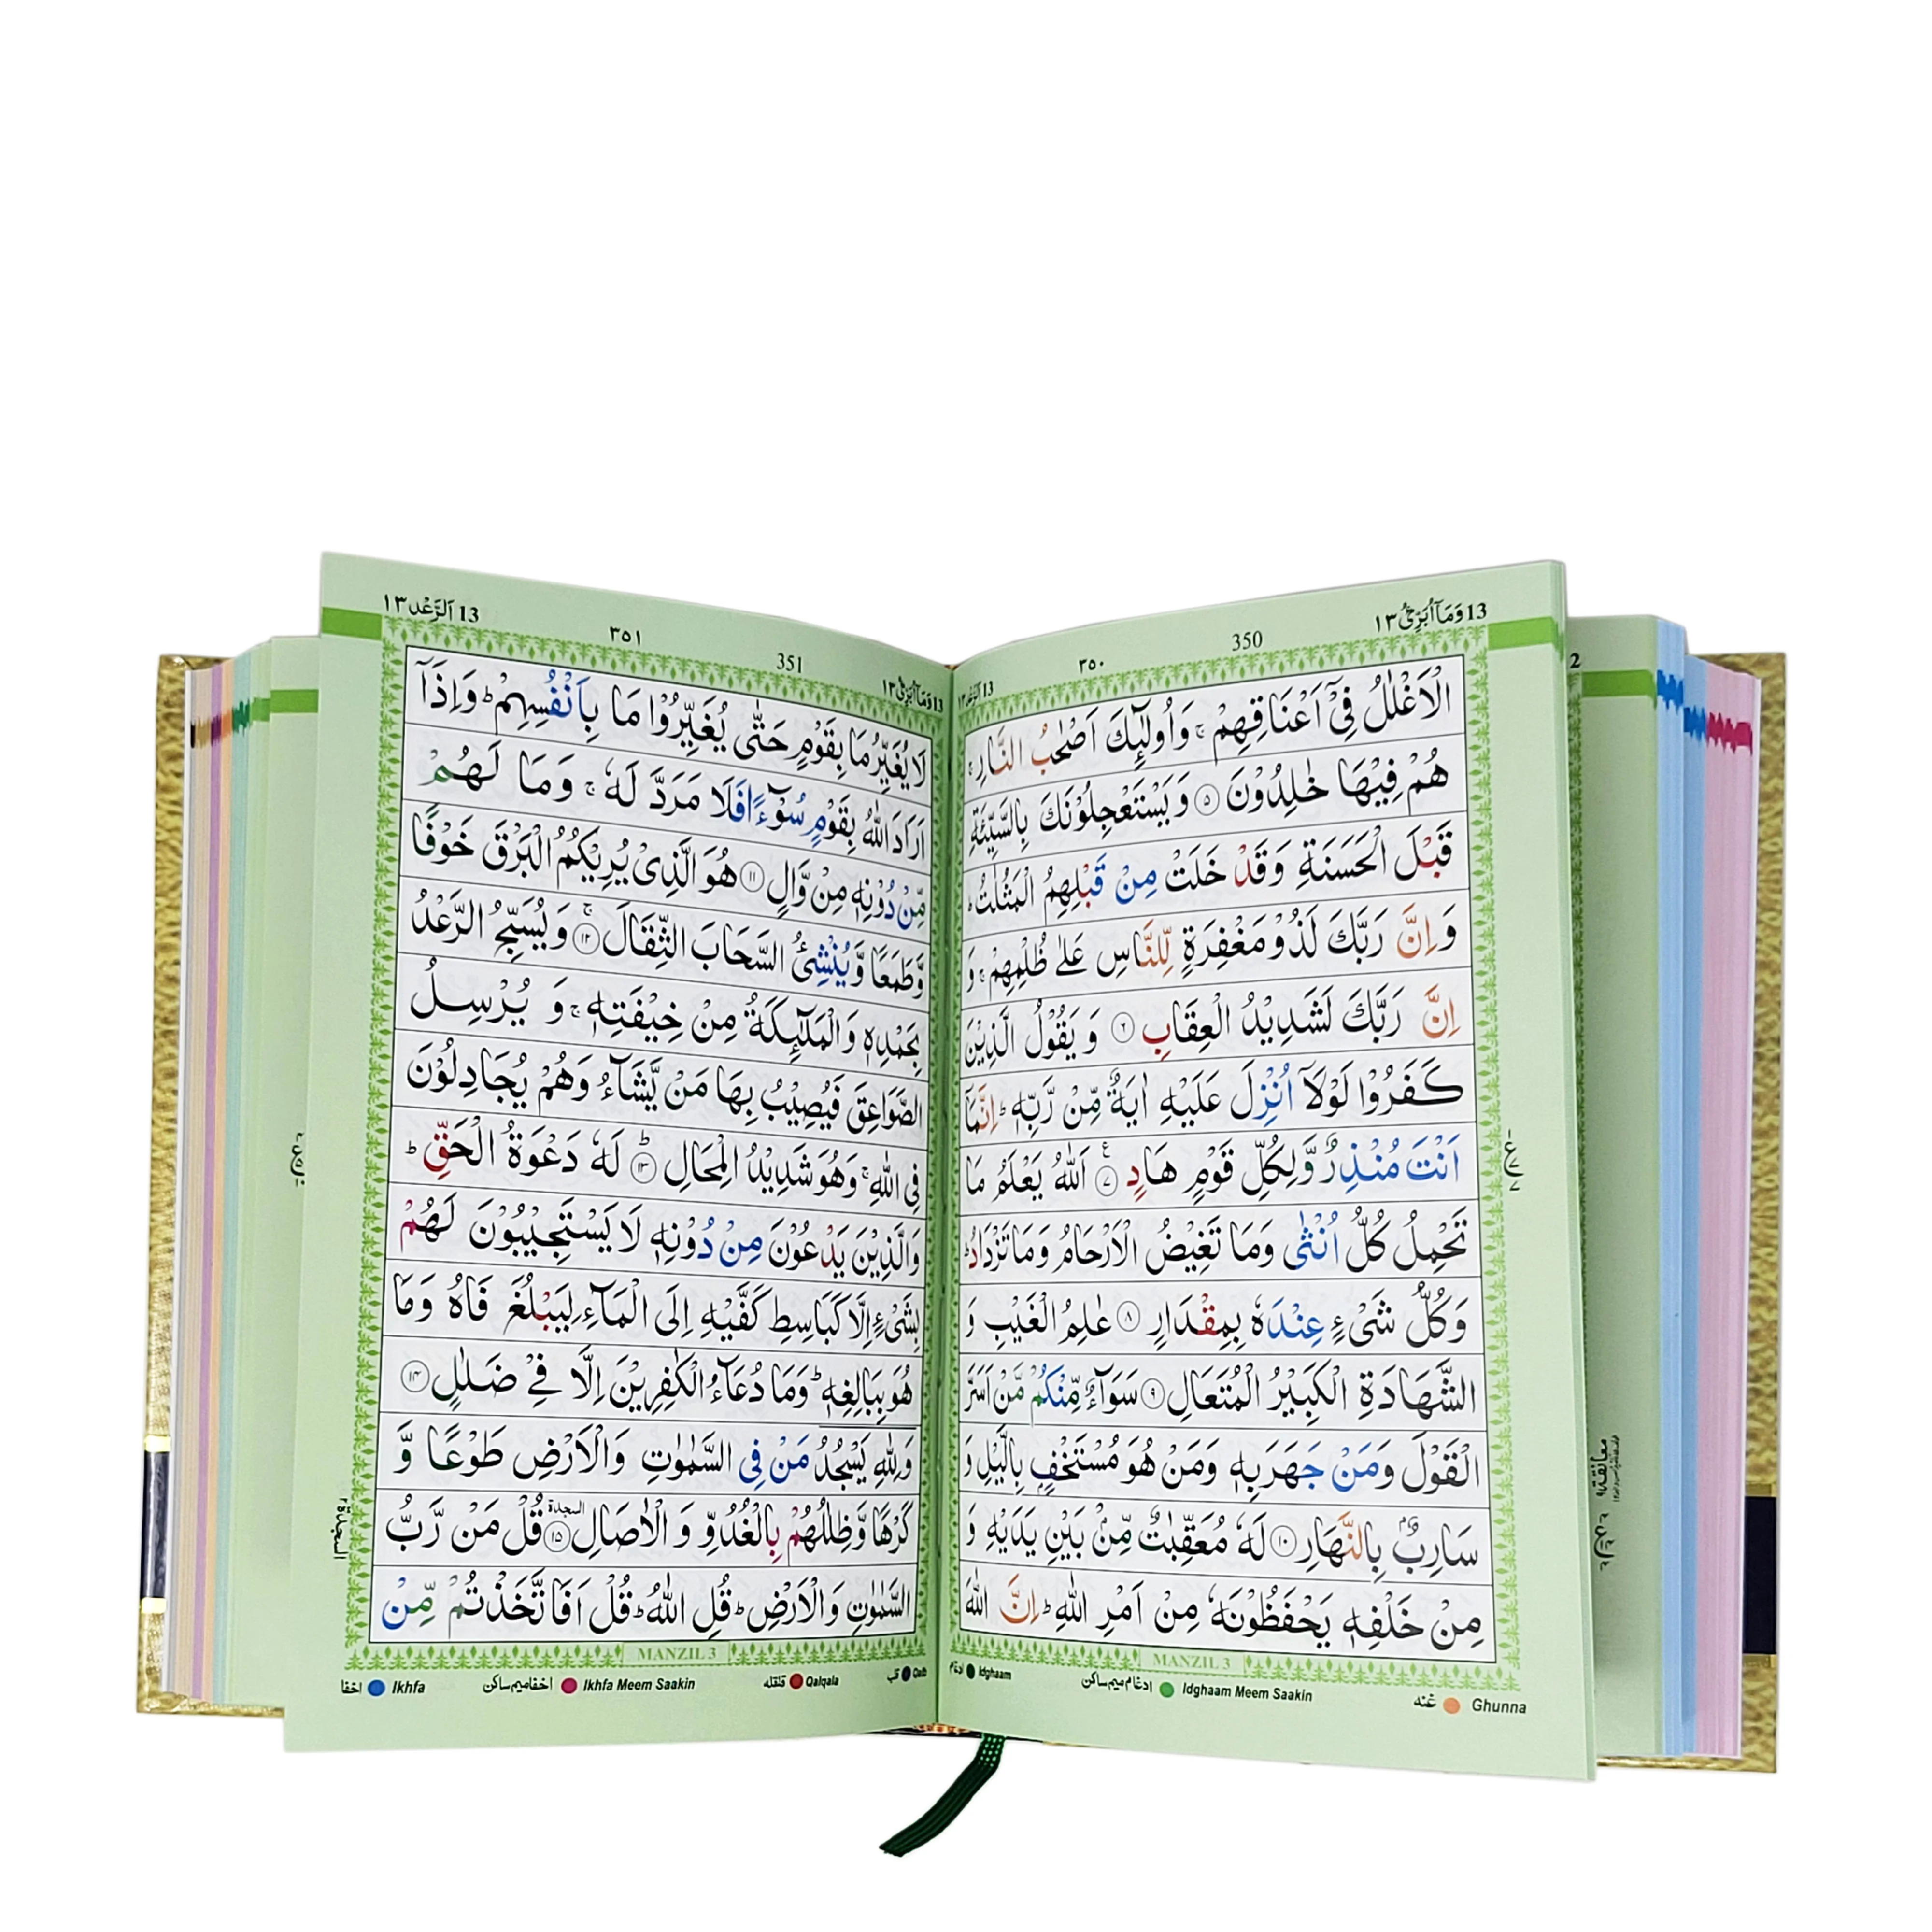 13 وَمَآ اُبَرِّئُ ١٣
350
٣٥٠
13 اَلرَّعْد ١٣
الْاَغْلٰلُ فِيْٓ اَعْنَاقِهِمْ ۚ وَاُولٰٓئِكَ اَصْحٰبُ النَّارِ ۚ
هُمْ فِيْهَا خٰلِدُوْنَ ﴿٥﴾ وَيَسْتَعْجِلُوْنَكَ بِالسَّيِّئَةِ
قَبْلَ الْحَسَنَةِ وَقَدْ خَلَتْ مِنْ قَبْلِهِمُ الْمَثُلٰتُ ؕ
وَاِنَّ رَبَّكَ لَذُوْ مَغْفِرَةٍ لِّلنَّاسِ عَلٰى ظُلْمِهِمْ ۚ وَ
اِنَّ رَبَّكَ لَشَدِيْدُ الْعِقَابِ ﴿٦﴾ وَيَقُوْلُ الَّذِيْنَ
كَفَرُوْا لَوْلَآ اُنْزِلَ عَلَيْهِ اٰيَةٌ مِّنْ رَّبِّهٖ ؕ اِنَّمَآ
اَنْتَ مُنْذِرٌ وَّلِكُلِّ قَوْمٍ هَادٍ ﴿٧﴾ اَللّٰهُ يَعْلَمُ مَا
تَحْمِلُ كُلُّ اُنْثٰى وَمَا تَغِيْضُ الْاَرْحَامُ وَمَا تَزْدَادُ ؕ
وَكُلُّ شَيْءٍ عِنْدَهٗ بِمِقْدَارٍ ﴿٨﴾ عٰلِمُ الْغَيْبِ وَ
الشَّهَادَةِ الْكَبِيْرُ الْمُتَعَالِ ﴿٩﴾ سَوَآءٌ مِّنْكُمْ مَّنْ اَسَرَّ
الْقَوْلَ وَمَنْ جَهَرَ بِهٖ وَمَنْ هُوَ مُسْتَخْفٍ بِالَّيْلِ وَ
سَارِبٌ بِالنَّهَارِ ﴿١٠﴾ لَهٗ مُعَقِّبٰتٌ مِّنْ بَيْنِ يَدَيْهِ وَ
مِنْ خَلْفِهٖ يَحْفَظُوْنَهٗ مِنْ اَمْرِ اللّٰهِ ؕ اِنَّ اللّٰهَ
MANZIL 3
Ghunna غنه
Idghaam Meem Saakin ادغام ميم ساكن
Idghaam ادغام
13 وَمَآ اُبَرِّئُ ١٣
351
٣٥١
13 اَلرَّعْد ١٣
لَا يُغَيِّرُ مَا بِقَوْمٍ حَتّٰى يُغَيِّرُوْا مَا بِاَنْفُسِهِمْ ؕ وَاِذَآ
اَرَادَ اللّٰهُ بِقَوْمٍ سُوْٓءًا فَلَا مَرَدَّ لَهٗ ۚ وَمَا لَهُمْ
مِّنْ دُوْنِهٖ مِنْ وَّالٍ ﴿١١﴾ هُوَ الَّذِيْ يُرِيْكُمُ الْبَرْقَ خَوْفًا
وَّطَمَعًا وَّيُنْشِئُ السَّحَابَ الثِّقَالَ ﴿١٢﴾ وَيُسَبِّحُ الرَّعْدُ
بِحَمْدِهٖ وَالْمَلٰٓئِكَةُ مِنْ خِيْفَتِهٖ ۚ وَ يُرْسِلُ
الصَّوَاعِقَ فَيُصِيْبُ بِهَا مَنْ يَّشَآءُ وَهُمْ يُجَادِلُوْنَ
فِي اللّٰهِ ۚ وَهُوَ شَدِيْدُ الْمِحَالِ ﴿١٣﴾ لَهٗ دَعْوَةُ الْحَقِّ ؕ
وَالَّذِيْنَ يَدْعُوْنَ مِنْ دُوْنِهٖ لَا يَسْتَجِيْبُوْنَ لَهُمْ
بِشَيْءٍ اِلَّا كَبَاسِطِ كَفَّيْهِ اِلَى الْمَآءِ لِيَبْلُغَ فَاهُ وَمَا
هُوَ بِبَالِغِهٖ ؕ وَمَا دُعَآءُ الْكٰفِرِيْنَ اِلَّا فِيْ ضَلٰلٍ ﴿١٤﴾
وَلِلّٰهِ يَسْجُدُ مَنْ فِي السَّمٰوٰتِ وَالْاَرْضِ طَوْعًا وَّ
كَرْهًا وَّظِلٰلُهُمْ بِالْغُدُوِّ وَ الْاٰصَالِ ﴿١٥﴾ السجدة قُلْ مَنْ رَّبُّ
السَّمٰوٰتِ وَالْاَرْضِ ؕ قُلِ اللّٰهُ ؕ قُلْ اَفَاتَّخَذْتُمْ مِّنْ
السجدة ٢
MANZIL 3
Qalb قلب
Qalqala قلقله
Ikhfa Meem Saakin اخفا ميم ساكن
Ikhfa اخفا
2
معانقة